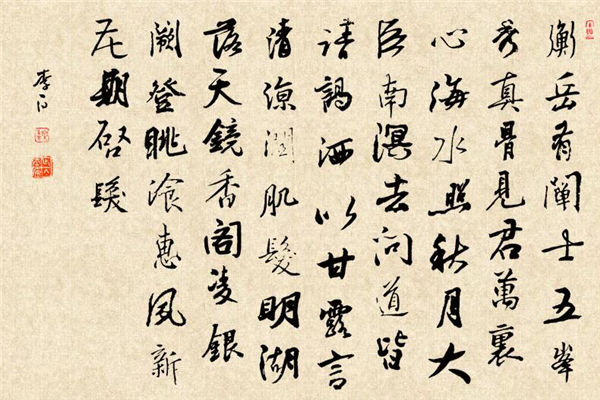 衡岳有闡士五峯
秀真骨見君萬裏
心海水照秋月大
臣南溟去問道皆
請謁洒以甘露言
清涼潤肌髮明湖
落天鏡香閣凌銀
闕登眺飡惠風新
花期啓髮
李白